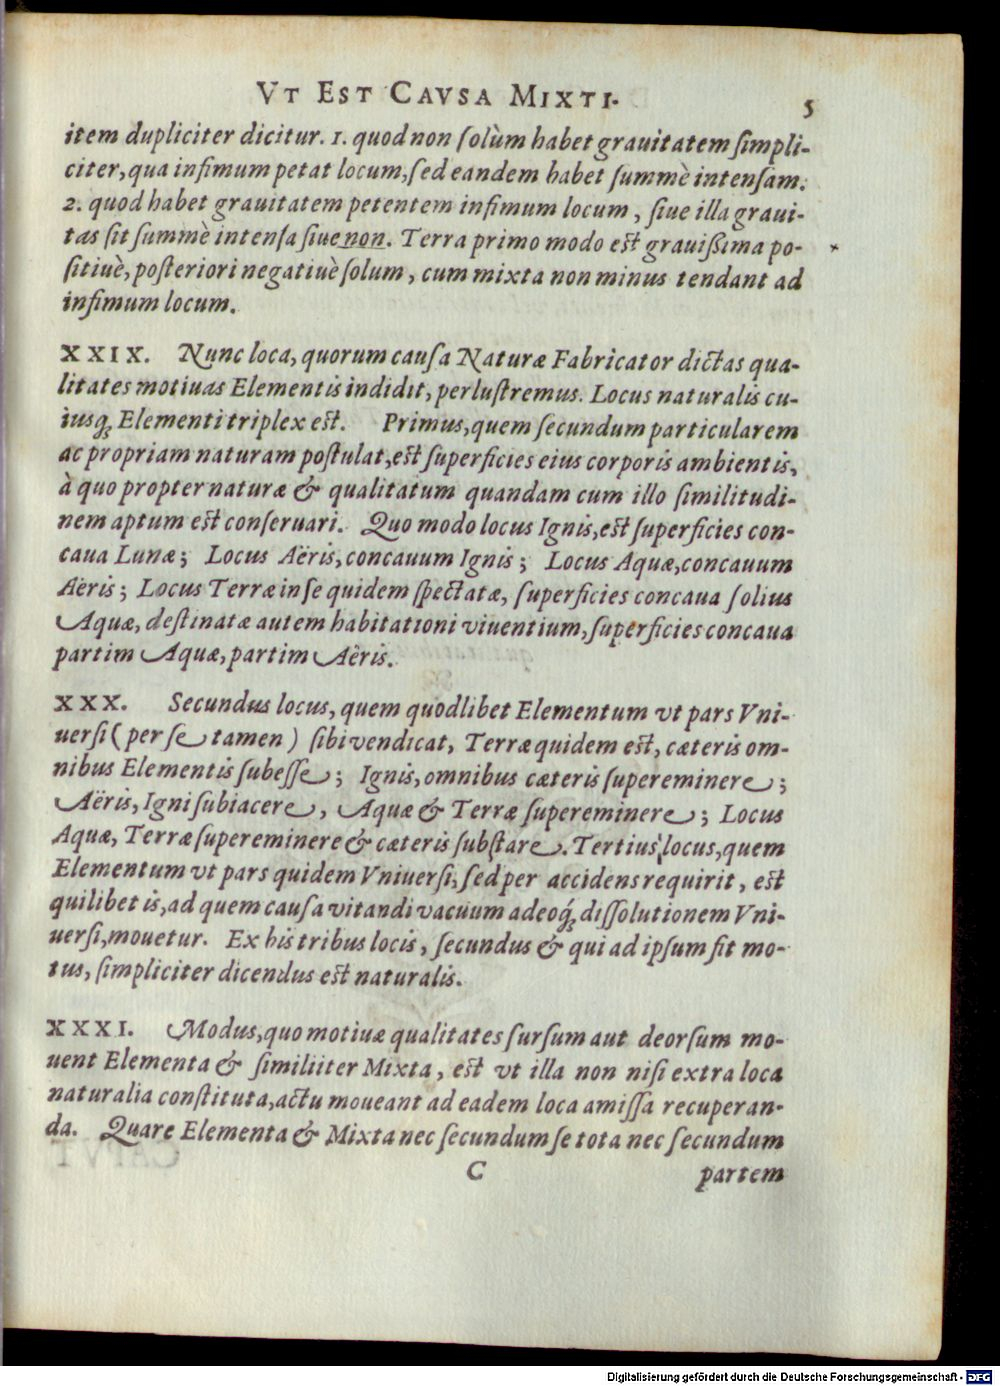 VT EST CAVSA MIXTI. 5
item dupliciter dicitur. 1. quod non ſolùm habet grauitatem ſimpli-
citer, qua infimum petat locum, ſed eandem habet ſummè intenſam.
2. quod habet grauitatem petentem infimum locum, ſiue illa graui-
tas ſit ſummè intenſa ſiue non. Terra primo modo est grauißima po-
ſitiuè, poſteriori negatiuè ſolum, cum mixta non minus tendant ad
infimum locum.
XXIX. Nunc loca, quorum cauſa Naturæ Fabricator dictas qua-
litates motiuas Elementis indidit, perluſtremus. Locus naturalis cu-
iusq́; Elementi triplex est. Primus, quem ſecundum particularem
ac propriam naturam poſtulat, est ſuperficies eius corporis ambientis,
à quo propter naturæ & qualitatum quandam cum illo ſimilitudi-
nem aptum est conſeruari. Quo modo locus Ignis, est ſuperficies con-
caua Lunæ; Locus Aëris, concauum Ignis; Locus Aquæ, concauum
Aëris; Locus Terræ in ſe quidem ſpectatæ, ſuperficies concaua ſolius
Aquæ, deſtinatæ autem habitationi viuentium, ſuperficies concaua
partim Aquæ, partim Aëris.
XXX. Secundus locus, quem quodlibet Elementum vt pars Vni-
uerſi (per ſe tamen) ſibi vendicat, Terræ quidem est, cæteris om-
nibus Elementis ſubeſſe; Ignis, omnibus cæteris ſupereminere;
Aëris, Igni ſubiacere, Aquæ & Terræ ſupereminere; Locus
Aquæ, Terræ ſupereminere & cæteris ſubſtare. Tertius locus, quem
Elementum vt pars quidem Vniuerſi, ſed per accidens requirit, est
quilibet is, ad quem cauſa vitandi vacuum adeoq́; diſſolutionem Vni-
uerſi, mouetur. Ex his tribus locis, ſecundus & qui ad ipſum fit mo-
tus, ſimpliciter dicendus est naturalis.
XXXI. Modus, quo motiuæ qualitates ſurſum aut deorſum mo-
uent Elementa & ſimiliiter Mixta, est vt illa non niſi extra loca
naturalia conſtituta, actu moueant ad eadem loca amiſſa recuperan-
da. Quare Elementa & Mixta nec ſecundum ſe tota nec ſecundum
C partem
Digitalisierung gefördert durch die Deutsche Forschungsgemeinschaft - DFG